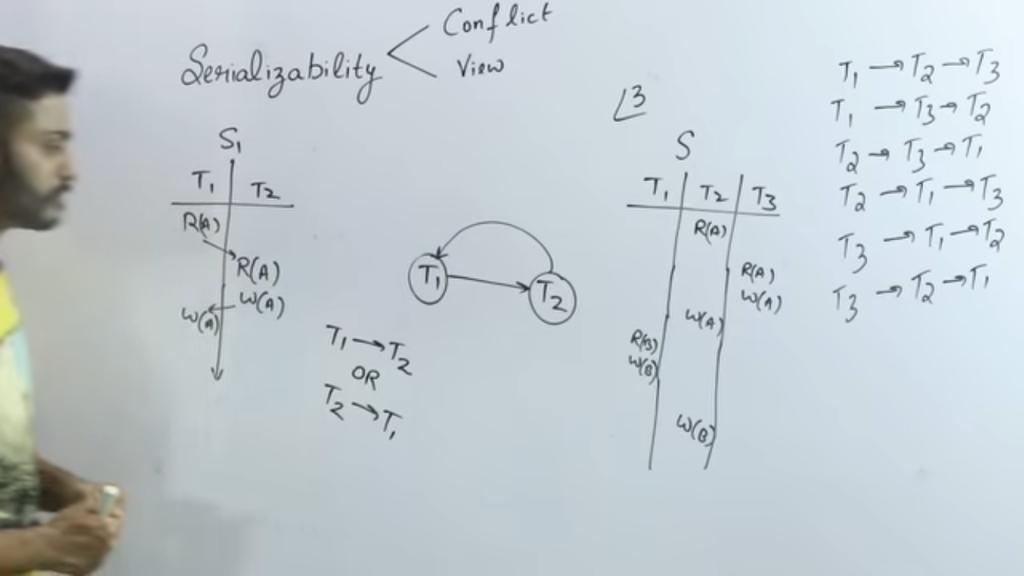 Serializability
Conflict
View
S1
T1 T2
R(A)
R(A)
W(A)
W(A)
T1 T2
T1 → T2
OR
T2 → T1
L3
S
T1 T2 T3
R(A)
R(A)
W(A)
W(A)
R(B)
W(B)
W(B)
T1 → T2 → T3
T1 → T3 → T2
T2 → T3 → T1
T2 → T1 → T3
T3 → T1 → T2
T3 → T2 → T1